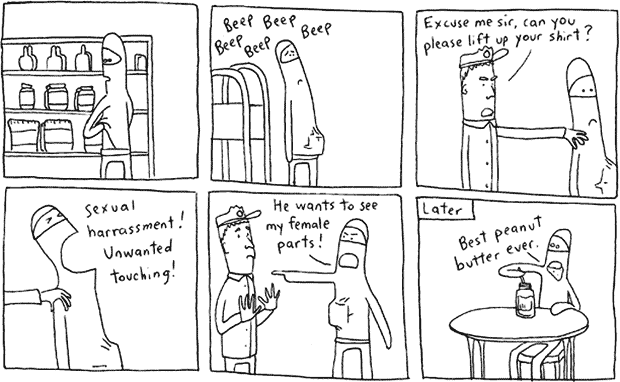 Beep Beep
Beep Beep Beep
Excuse me sir, can you
please lift up your shirt?
Sexual
harrassment!
Unwanted
touching!
He wants to see
my female
parts!
Later
Best peanut
butter ever.